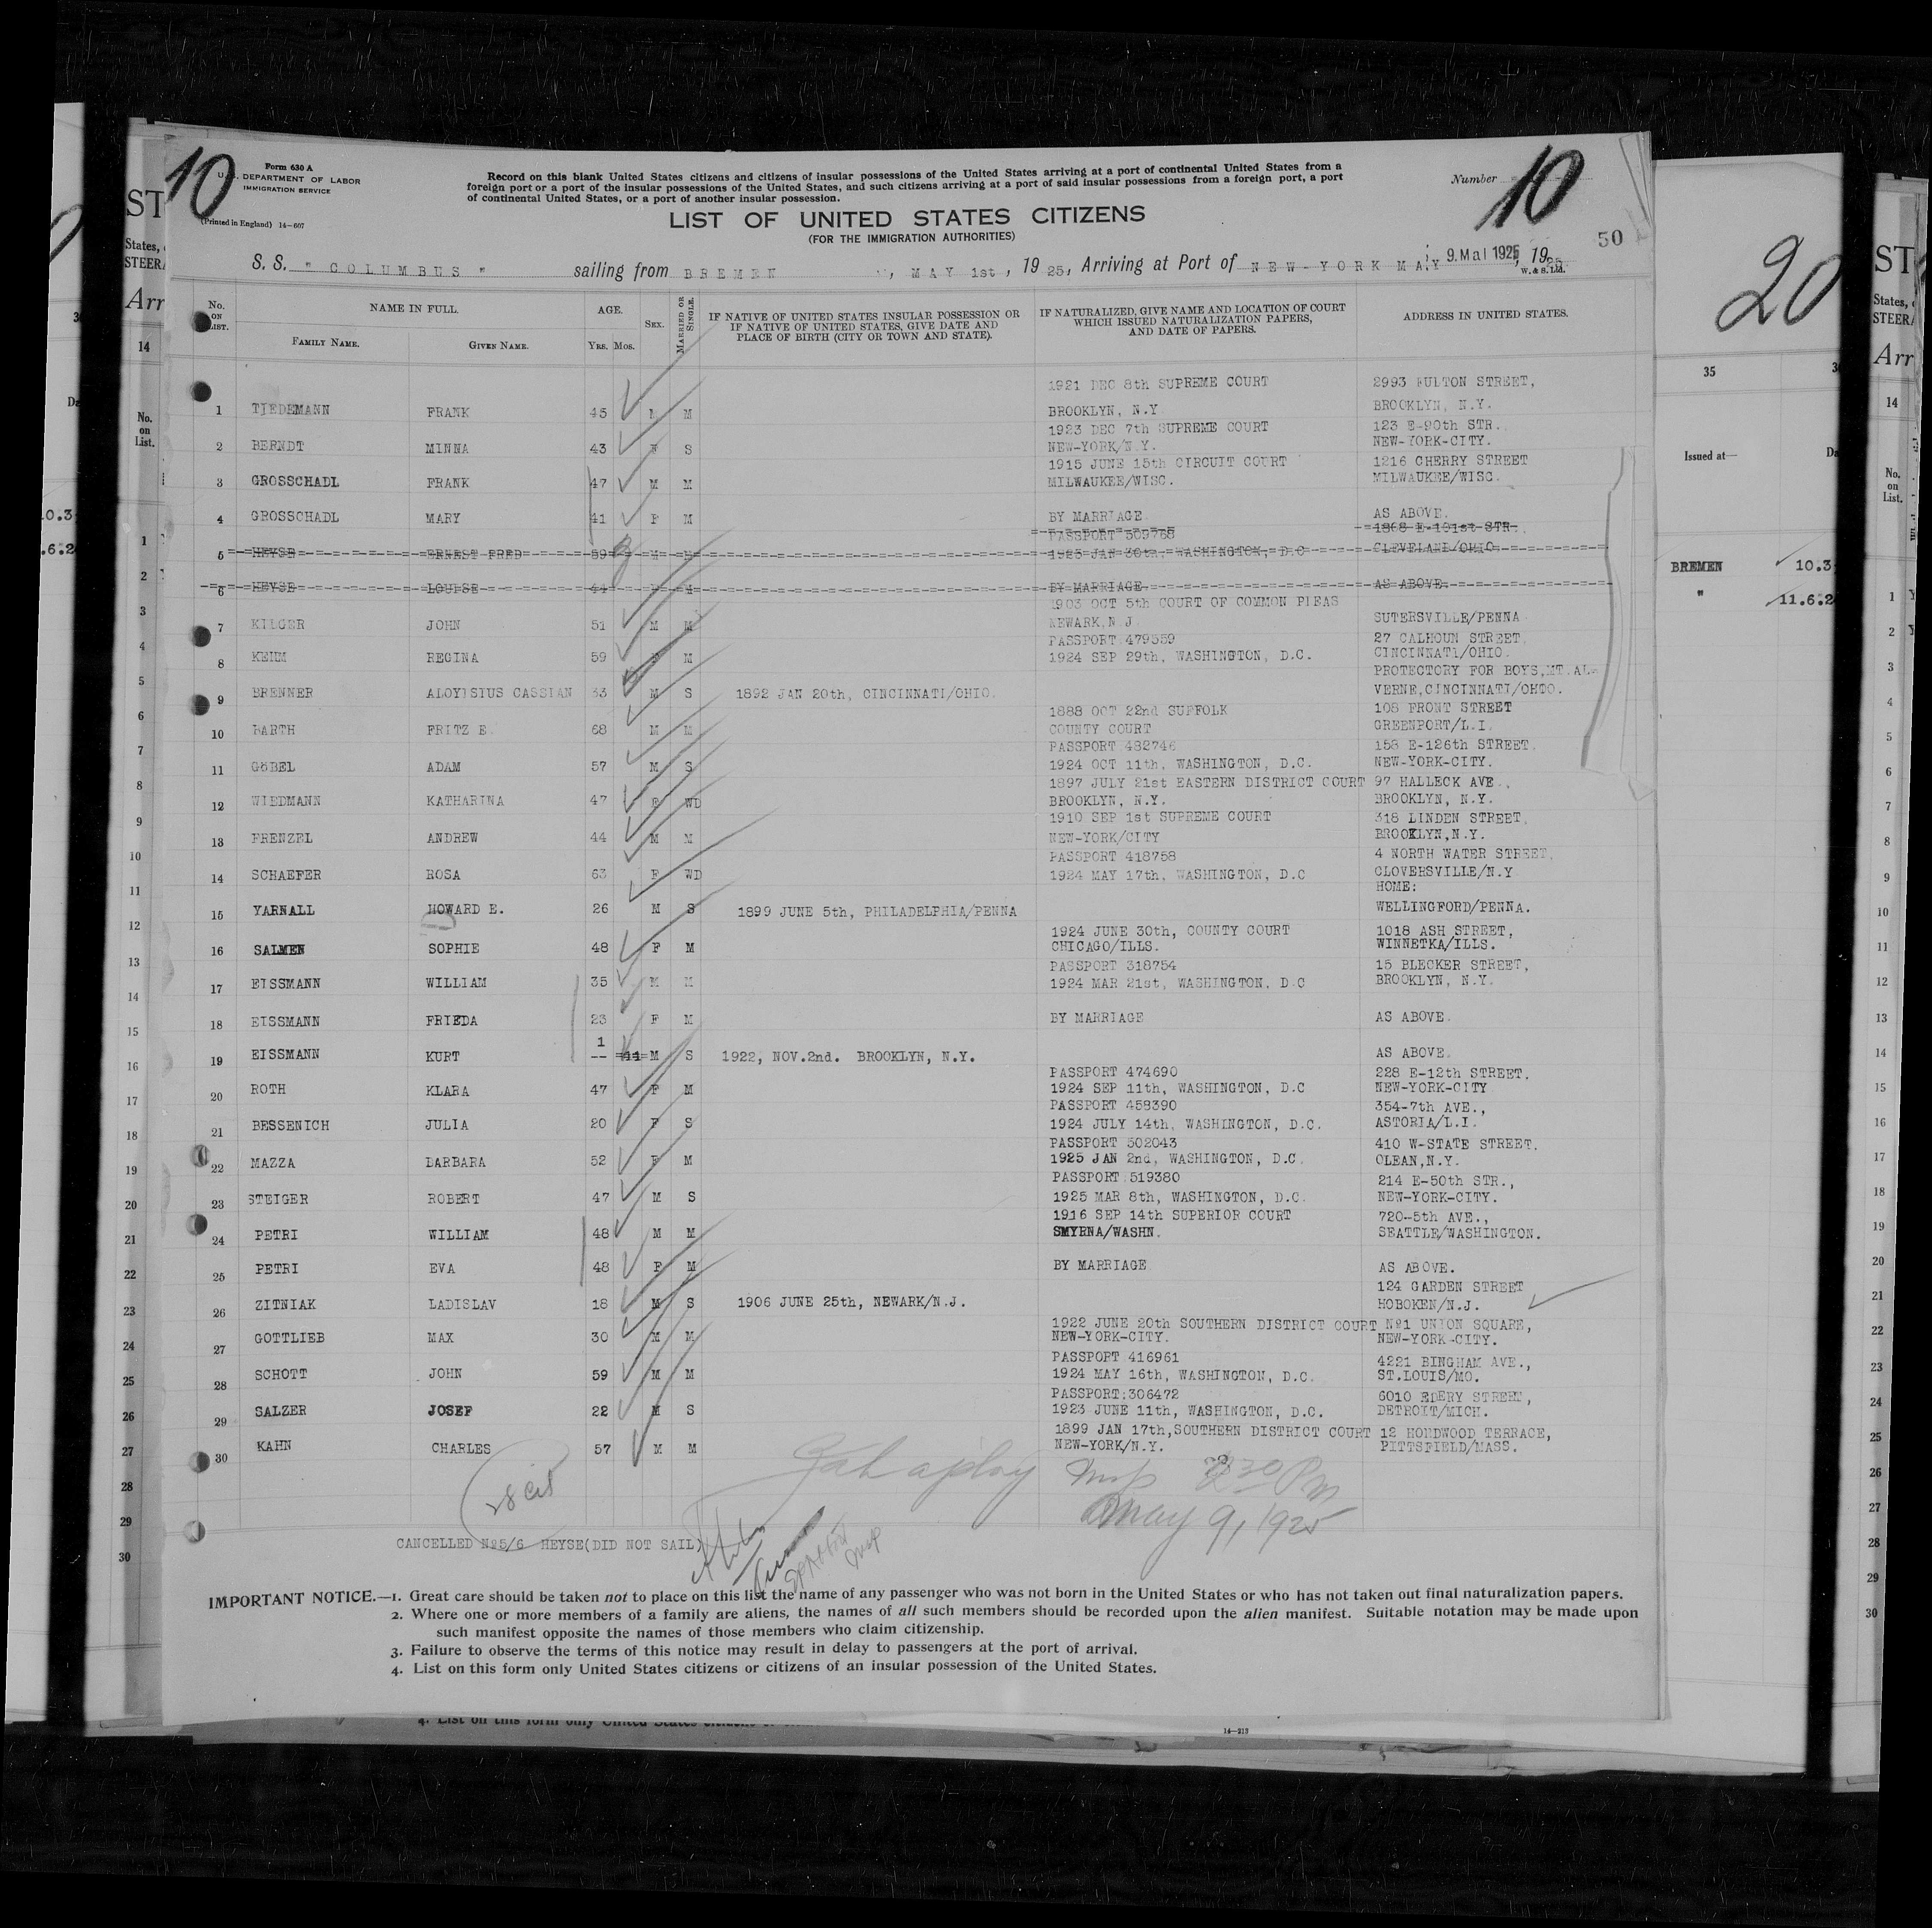 10
Form 630 A
U.S. DEPARTMENT OF LABOR
IMMIGRATION SERVICE
(Printed in England) 14-607
Record on this blank United States citizens and citizens of insular possessions of the United States arriving at a port of continental United States from a
foreign port or a port of the insular possessions of the United States, and such citizens arriving at a port of said insular possessions from a foreign port, a port
of continental United States, or a port of another insular possession.
Number 10
LIST OF UNITED STATES CITIZENS
(FOR THE IMMIGRATION AUTHORITIES)
50
S. S. "COLUMBUS" sailing from BREMEN, MAY 1st, 1925, Arriving at Port of NEW-YORK MAY 9. Mai 1925, 1925
W. & S. Ltd.
No. ON LIST. NAME IN FULL. FAMILY NAME. GIVEN NAME. AGE. YRS. MOS. SEX. MARRIED OR SINGLE. IF NATIVE OF UNITED STATES INSULAR POSSESSION OR IF NATIVE OF UNITED STATES, GIVE DATE AND PLACE OF BIRTH (CITY OR TOWN AND STATE). IF NATURALIZED, GIVE NAME AND LOCATION OF COURT WHICH ISSUED NATURALIZATION PAPERS, AND DATE OF PAPERS. ADDRESS IN UNITED STATES.
1921 DEC 8th SUPREME COURT 2993 FULTON STREET,
1 TIEDEMANN FRANK 45 M M BROOKLYN, N.Y. BROOKLYN, N.Y.
1923 DEC 7th SUPREME COURT 123 E-90th STR.
2 BERNDT MINNA 43 F S NEW-YORK/N.Y. NEW-YORK-CITY.
1915 JUNE 15th CIRCUIT COURT 1216 CHERRY STREET
3 GROSSCHADL FRANK 47 M M MILWAUKEE/WISC. MILWAUKEE/WISC.
4 GROSSCHADL MARY 41 F M BY MARRIAGE AS ABOVE.
PASSPORT 509768 1868 E-191st STR.
5 HEYSE ERNEST FRED 59 M M 1925 JAN 30th, WASHINGTON, D.C CLEVELAND/OHIO
6 HEYSE LOUISE 44 F M BY MARRIAGE AS ABOVE
1903 OCT 5th COURT OF COMMON PLEAS
7 KILGER JOHN 51 M M NEWARK,N.J. SUTERSVILLE/PENNA
PASSPORT 479559 27 CALHOUN STREET,
8 KEHM REGINA 59 F M 1924 SEP 29th, WASHINGTON, D.C. CINCINNATI/OHIO.
PROTECTORY FOR BOYS,MT.AL-
9 BRENNER ALOYISIUS CASSIAN 33 M S 1892 JAN 20th, CINCINNATI/OHIO. VERNE,CINCINNATI/OHIO.
1888 OCT 22nd SUFFOLK 108 FRONT STREET
10 BARTH FRITZ E. 68 M M COUNTY COURT GREENPORT/L.I.
PASSPORT 482746 158 E-126th STREET.
11 GÖBEL ADAM 57 M S 1924 OCT 11th, WASHINGTON, D.C. NEW-YORK-CITY.
1897 JULY 21st EASTERN DISTRICT COURT 97 HALLECK AVE.,
12 WIEDMANN KATHARINA 47 F WD BROOKLYN, N.Y. BROOKLYN, N.Y.
1910 SEP 1st SUPREME COURT 318 LINDEN STREET,
13 FRENZEL ANDREW 44 M M NEW-YORK/CITY BROOKLYN,N.Y.
PASSPORT 418758 4 NORTH WATER STREET,
14 SCHAEFER ROSA 63 F WD 1924 MAY 17th, WASHINGTON, D.C CLOVERSVILLE/N.Y
HOME:
15 YARNALL HOWARD E. 26 M S 1899 JUNE 5th, PHILADELPHIA/PENNA WELLINGFORD/PENNA.
1924 JUNE 30th, COUNTY COURT 1018 ASH STREET,
16 SALMEN SOPHIE 48 F M CHICAGO/ILLS. WINNETKA/ILLS.
PASSPORT 318754 15 BLECKER STREET,
17 EISSMANN WILLIAM 35 M M 1924 MAR 21st, WASHINGTON, D.C BROOKLYN, N.Y.
18 EISSMANN FRIEDA 23 F M BY MARRIAGE AS ABOVE.
1
19 EISSMANN KURT -- 11 M S 1922, NOV.2nd. BROOKLYN, N.Y. AS ABOVE.
PASSPORT 474690 228 E-12th STREET.
20 ROTH KLARA 47 F M 1924 SEP 11th, WASHINGTON, D.C NEW-YORK-CITY
PASSPORT 458390 354-7th AVE.,
21 BESSENICH JULIA 20 F S 1924 JULY 14th, WASHINGTON, D.C. ASTORIA/L.I.
PASSPORT 502043 410 W-STATE STREET.
22 MAZZA BARBARA 52 F M 1925 JAN 2nd, WASHINGTON, D.C. OLEAN,N.Y.
PASSPORT 519380 214 E-50th STR.,
23 STEIGER ROBERT 47 M S 1925 MAR 8th, WASHINGTON, D.C. NEW-YORK-CITY.
1916 SEP 14th SUPERIOR COURT 720-5th AVE.,
24 PETRI WILLIAM 48 M M SMYRNA/WASHN. SEATTLE/WASHINGTON.
25 PETRI EVA 48 F M BY MARRIAGE AS ABOVE.
124 GARDEN STREET
26 ZITNIAK LADISLAV 18 M S 1906 JUNE 25th, NEWARK/N.J. HOBOKEN/N.J.
1922 JUNE 20th SOUTHERN DISTRICT COURT №1 UNION SQUARE,
27 GOTTLIEB MAX 30 M M NEW-YORK-CITY. NEW-YORK-CITY.
PASSPORT 416961 4221 BINGHAM AVE.,
28 SCHOTT JOHN 59 M M 1924 MAY 16th, WASHINGTON, D.C. ST.LOUIS/MO.
PASSPORT:306472 6010 EDERY STREET,
29 SALZER JOSEF 22 M S 1923 JUNE 11th, WASHINGTON, D.C. DETROIT/MICH.
1899 JAN 17th,SOUTHERN DISTRICT COURT 12 HOMDWOOD TERRACE,
30 KAHN CHARLES 57 M M NEW-YORK/N.Y. PITTSFIELD/MASS.
28 cit
Insp 30 PM
May 9, 1925
CANCELLED №5/6 HEYSE(DID NOT SAIL)
Insp
IMPORTANT NOTICE.—1. Great care should be taken not to place on this list the name of any passenger who was not born in the United States or who has not taken out final naturalization papers.
2. Where one or more members of a family are aliens, the names of all such members should be recorded upon the alien manifest. Suitable notation may be made upon
such manifest opposite the names of those members who claim citizenship.
3. Failure to observe the terms of this notice may result in delay to passengers at the port of arrival.
4. List on this form only United States citizens or citizens of an insular possession of the United States.
14-213
20
35
Issued at—
BREMEN 10.3
" 11.6.2
ST
States,
STEER
Arr
14
No. on List.